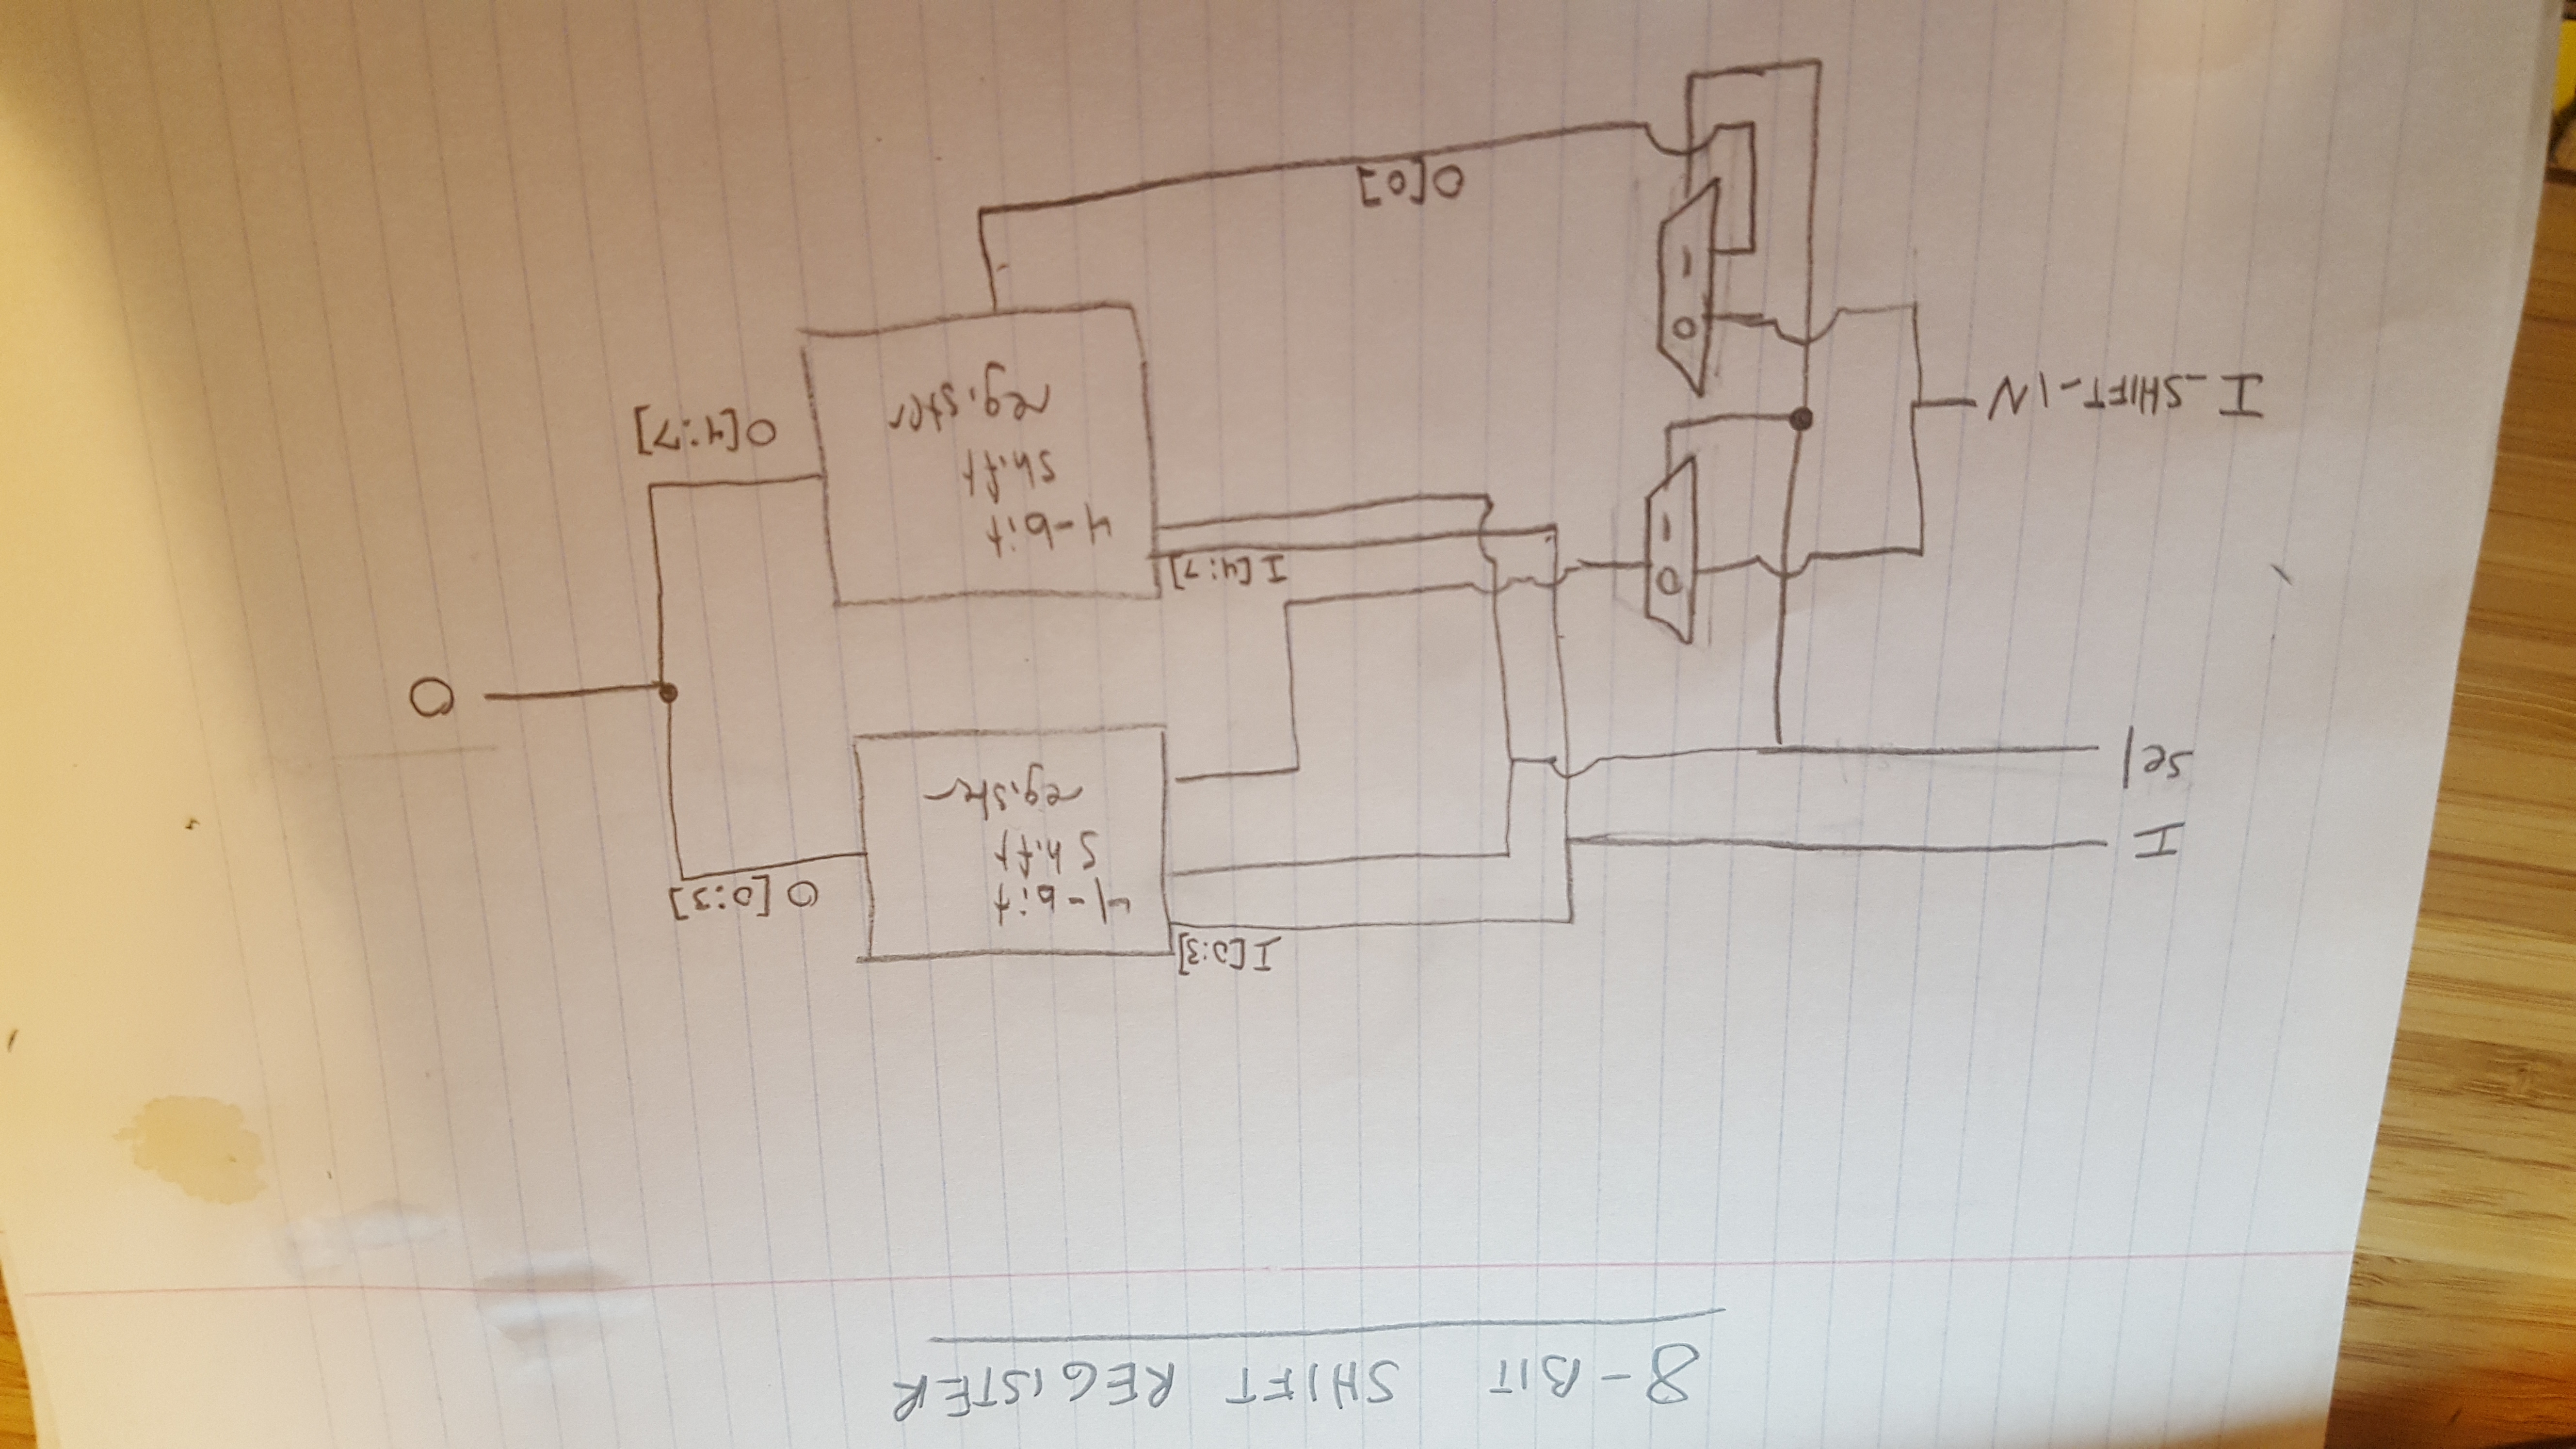 8-BIT SHIFT REGISTER
I
sel
I_SHIFT-IN
0
1
0
1
I[0:3]
I[4:7]
4-bit
shift
register
4-bit
shift
register
O[0]
O[0:3]
O[4:7]
O